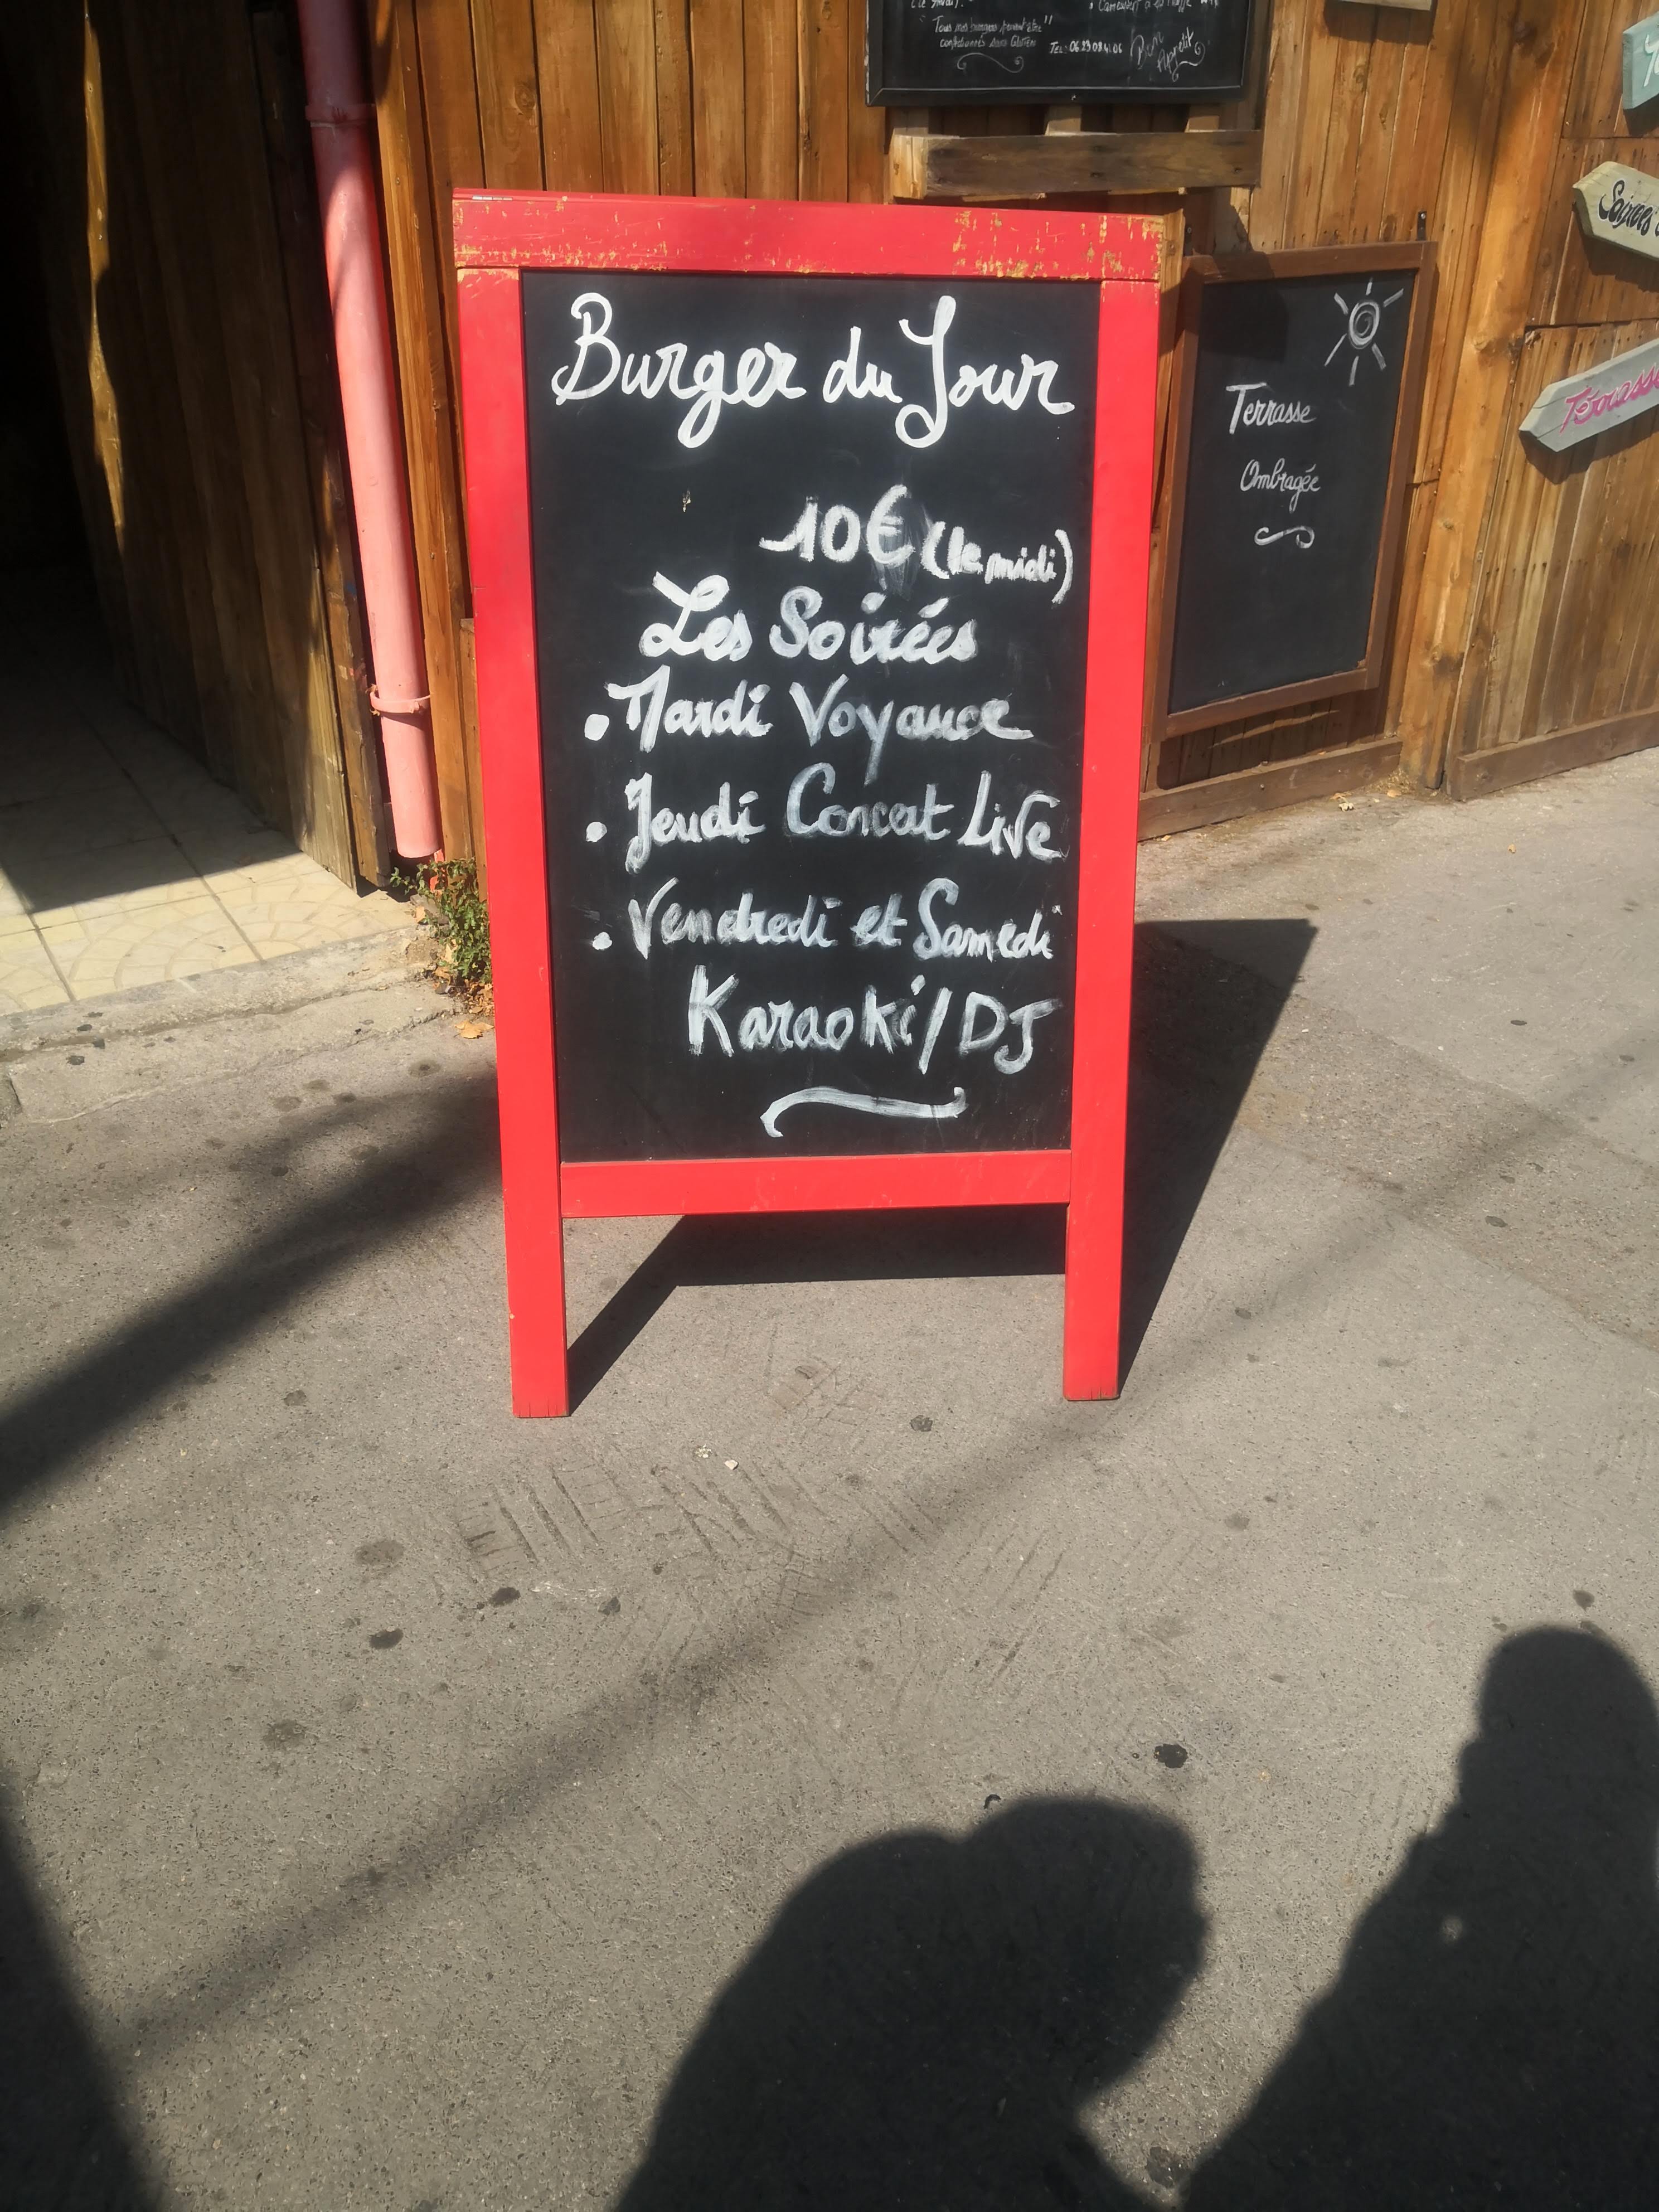 "Tous nos burgers peuvent être
confectionnés sans Gluten
Bon
Appétit
Burger du Jour
10€ (le midi)
Les Soirées
• Mardi Voyance
• Jeudi Concert Live
• Vendredi et Samedi
Karaoki/DJ
Terrasse
Ombragée
Soirées
Terrasse